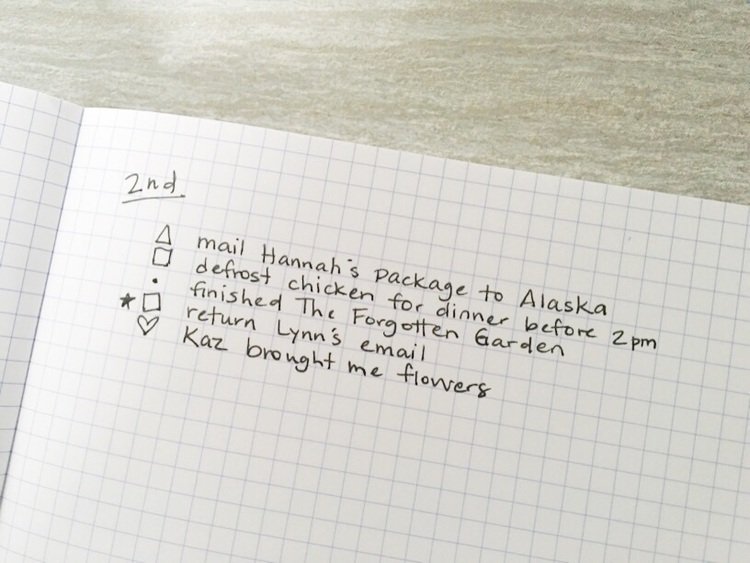 2nd
△ mail Hannah's package to Alaska
□ defrost chicken for dinner before 2pm
• finished The Forgotten Garden
★ □ return Lynn's email
♡ Kaz brought me flowers